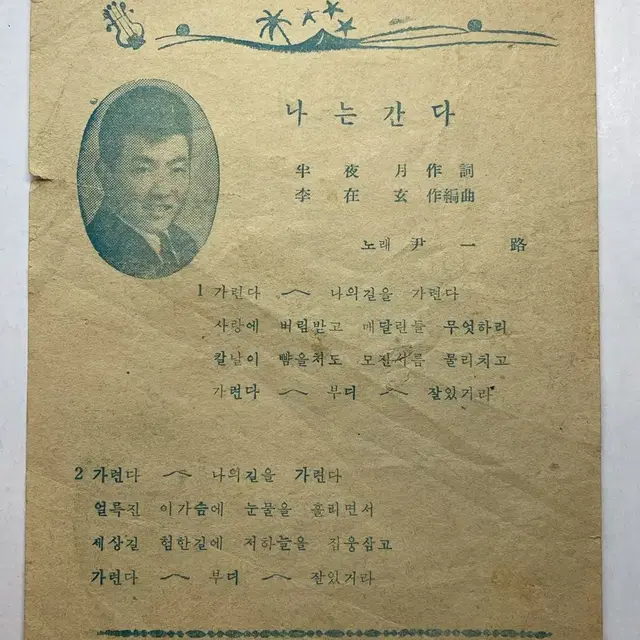 나는간다
半夜月作詞
李在玄作編曲
노래 尹一路
1 가련다 〜 나의길을 가련다
사랑에 버림받고 매달린들 무엇하리
칼날이 뺨을처도 모진서름 물리치고
가련다 〜 부디 〜 잘있거라
2 가련다 〜 나의길을 가련다
얼룩진 이가슴에 눈물을 흘리면서
세상길 험한길에 저하늘을 집웅삼고
가련다 〜 부디 〜 잘있거라